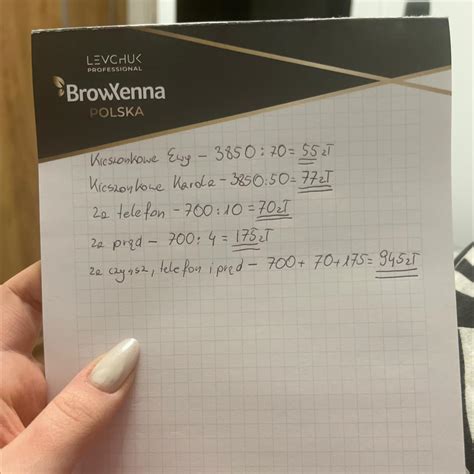 LEVCHUK
PROFESSIONAL
BrowXenna
POLSKA
Kieszonkowe Ewy - 3850 : 70 = 55zł
Kieszonkowe Karola - 3850:50 = 77zł
Za telefon - 700 : 10 = 70zł
za prąd - 700 : 4 = 175zł
za czynsz, telefon i prąd - 700 + 70 + 175 = 945zł